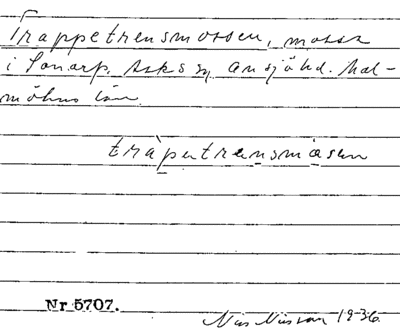 Trappetrensmossen, mosse
i Sonarp, Asks sn, Onsjö hd. Mal-
möhus län.
tràpetrænsmåsen
Nr 5707.
Nils Nilsson 1936